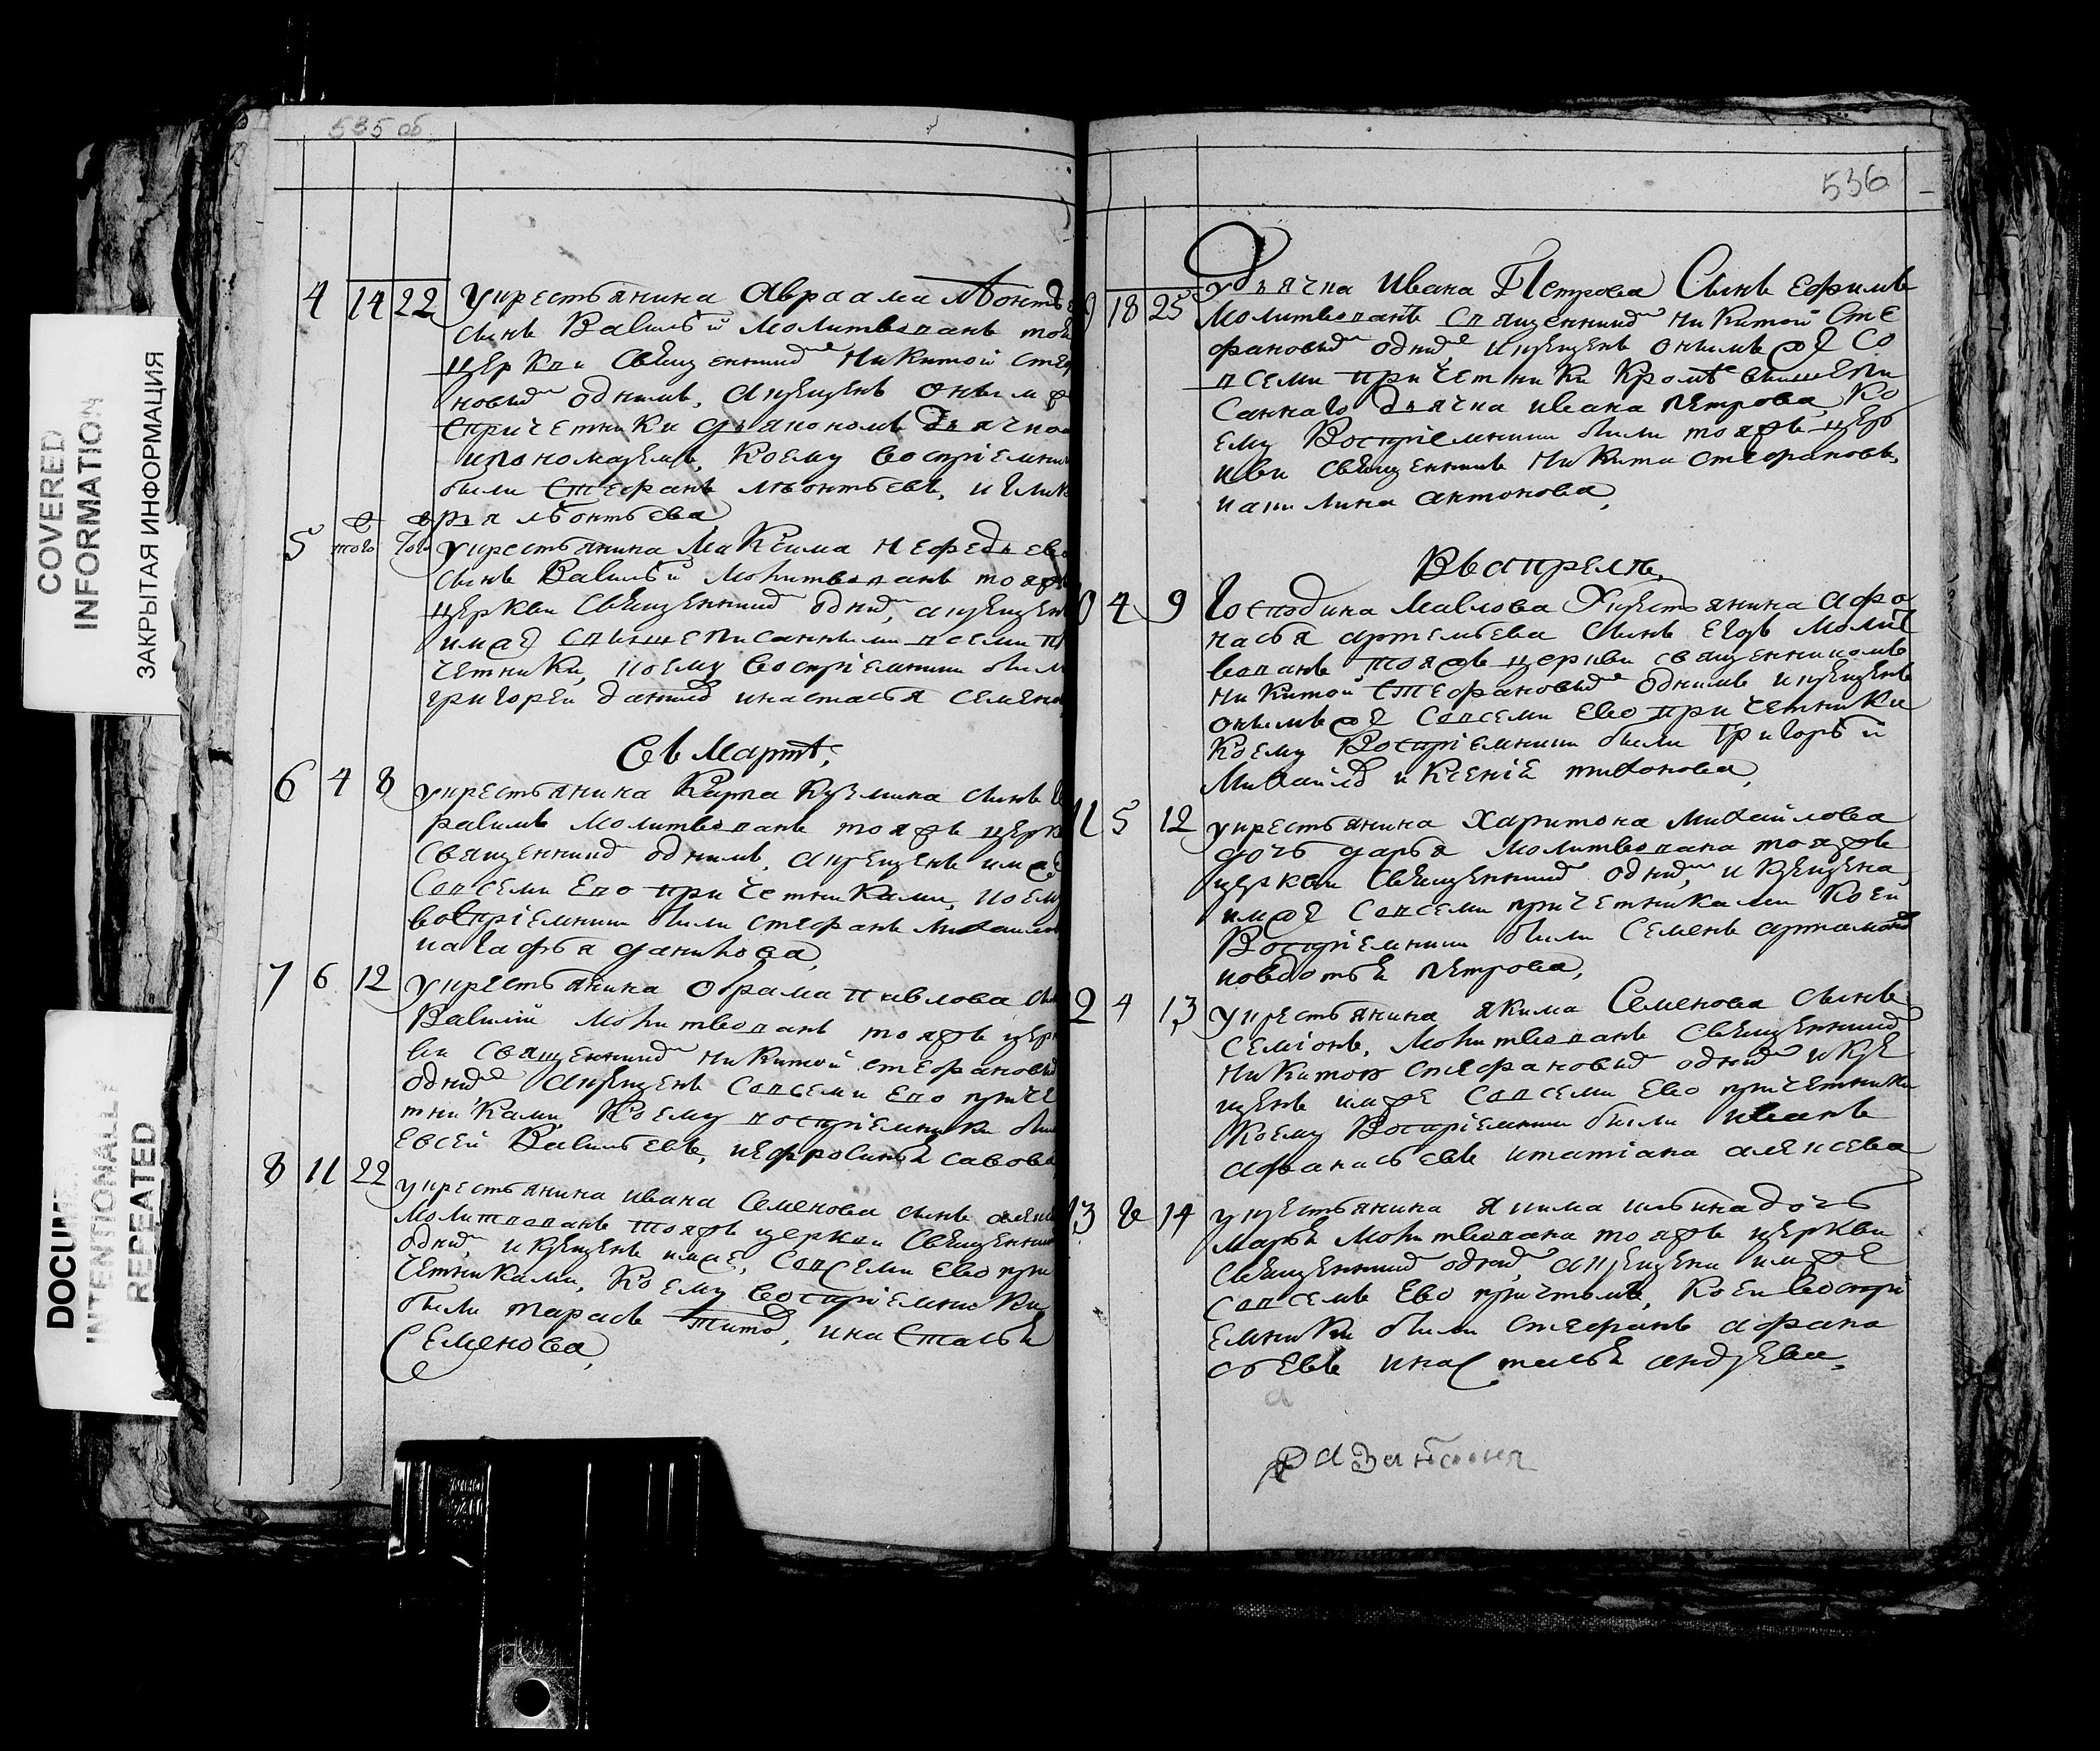 COVERED
INFORMATION
ЗАКРЫТАЯ ИНФОРМАЦИЯ
INTENTIONALLY
REPEATED
535 об
4 14 22 у крестьянина Авраама Леонтье
сынъ Василей молитвованъ той
церкви священником Никитой Стеф
новым однимъ, а крещенъ онымъ
с причетники дьякономъ дьячко
и пономаремъ, коему восприемни
были Стефанъ Леонтьевъ, и Глике
рья Леонтьева
5 того того у крестьянина Максима Нефедьева
сынъ Василей молитвованъ тояже
церкви священником одним, а крещен
им же с вышеписанными всеми при
четники, коему восприемники были
Григорей Данилов и Настасья Семено
Въ Марте,
6 4 8 у крестьянина Карпа Кузмина сынъ Ге
расимъ молитвованъ тояже церк
священником однимъ, а крещенъ имже
со всеми ево причетниками, коему
восприемники были Стефанъ Михаилов
и Агафья Данилова,
7 6 12 у крестьянина Обрама Павлова сын
Василии молитвованъ тояже церк
ви священником Никитой Стефановым
одним а крещенъ со всеми ево приче
тниками, коему восприемники были
Евсей Васильевъ, и Ефросинья Савова
8 11 22 у крестьянина Ивана Семенова сынъ Алексе
молитвованъ тояже церкви священни
одним, и крещенъ имже, со всеми ево при
четниками, коему восприемники
были Тарасъ Титов, и Настасья
Семенова,
536
9 18 25 У дьячка Ивана Петрова сынъ Ефимъ
молитвованъ священником Никитой Сте
фановым одним, и крещенъ онымъ же со
всеми причетники кроме вышепи
саннаго дьячка Ивана Петрова, ко
ему восприемники были тояже цер
кви священникъ Никита Стефановъ,
и Акилина Антонова,
Въ апреле,
10 4 9 Господина Маслова у крестьянина Афо
насья Артемьева сынъ Егоръ молит
вованъ тояже церкви священникомъ
Никитой Стефановым однимъ и крещенъ
онымъ же со всеми ево причетники
коему восприемники были Григорьй
Михайлов и Ксения Тихонова,
11 5 12 у крестьянина Харитона Михайлова
дочь Дарья молитвована тояже
церкви священником одним, и крещена
им же со всеми причетниками коей
восприемники были Семенъ Артамонов
и Овдотья Петрова,
12 4 13 у крестьянина Якима Семенова сынъ
Семионъ, молитвованъ священником
Никитою Стефановым одним и кре
щенъ имже со всеми ево причетники
коему восприемники были Иванъ
Афанасьевъ и Татиана Алексева
13 14 у крестьянина Якима Ильина дочь
Марья молитвована тояже церкви
священником одним, а крещена имже
со всемъ ево причтомъ, коей воспри
емники были Стефанъ Афана
сьевъ и Настасья Андреева,